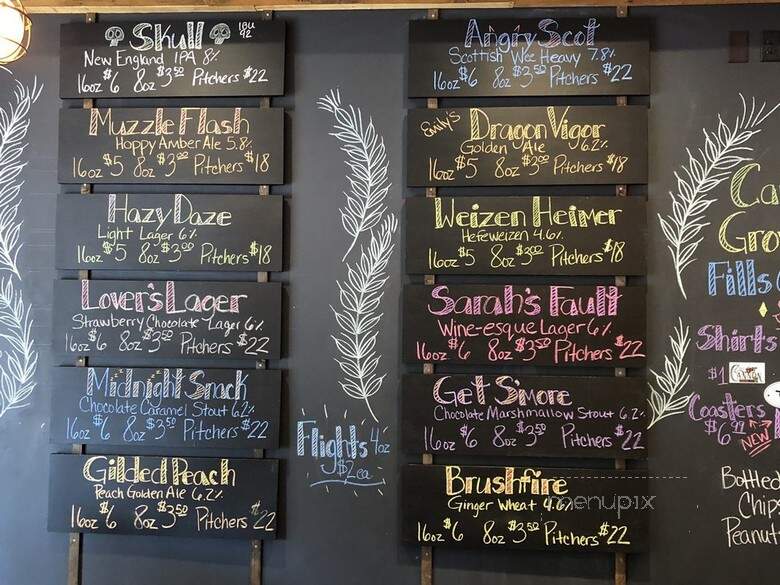 Skull IBU 92
New England IPA 8%
16oz $6 8oz $3.50 Pitchers $22
Muzzle Flash
Hoppy Amber Ale 5.8%
16oz $5 8oz $3.00 Pitchers $18
Hazy Daze
Light Lager 6%
16oz $5 8oz $3.00 Pitchers $18
Lover's Lager
Strawberry Chocolate Lager 6%
16oz $6 8oz $3.50 Pitchers $22
Midnight Snack
Chocolate Caramel Stout 6.2%
16oz $6 8oz $3.50 Pitchers $22
Gilded Peach
Peach Golden Ale 6.2%
16oz $6 8oz $3.50 Pitchers $22
Flights 4oz
$2ea
Angry Scot
Scottish Wee Heavy 7.8%
16oz $6 8oz $3.50 Pitchers $22
Emily's Dragon Vigor
Golden Ale 6.2%
16oz $5 8oz $3.00 Pitchers $18
Weizen Heimer
Hefeweizen 4.6%
16oz $5 8oz $3.00 Pitchers $18
Sarah's Fault
Wine-esque Lager 6%
16oz $6 8oz $3.50 Pitchers $22
Get S'more
Chocolate Marshmallow Stout 6.2%
16oz $6 8oz $3.50 Pitchers $22
Brushfire
Ginger Wheat 4.6%
16oz $6 8oz $3.50 Pitchers $22
menupix
Ca
Gro
Fills
Shirts
$1
Coasters
NEW
Bottled
Chips
Peanut